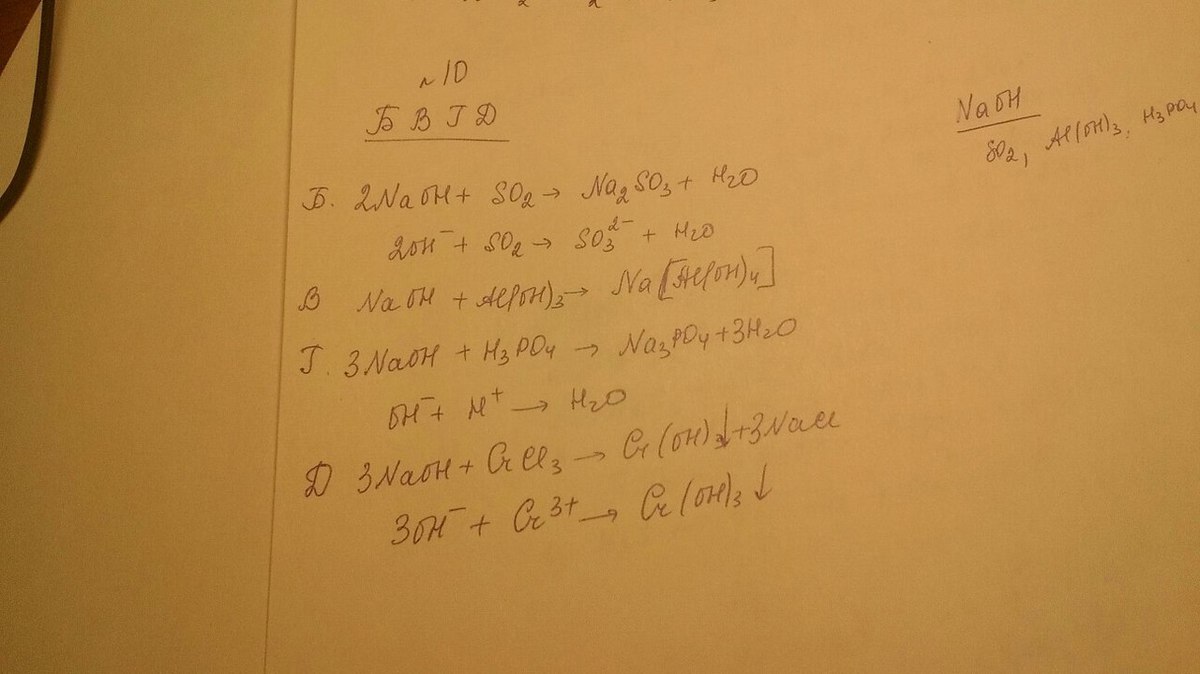 №10
Б В Г Д
NaOH
SO₂, Al(OH)₃, H₃PO₄
Б. 2NaOH + SO₂ → Na₂SO₃ + H₂O
2OH⁻ + SO₂ → SO₃²⁻ + H₂O
В NaOH + Al(OH)₃ → Na[Al(OH)₄]
Г. 3NaOH + H₃PO₄ → Na₃PO₄ + 3H₂O
OH⁻ + H⁺ → H₂O
Д 3NaOH + CrCl₃ → Cr(OH)₃↓ + 3NaCl
3OH⁻ + Cr³⁺ → Cr(OH)₃↓